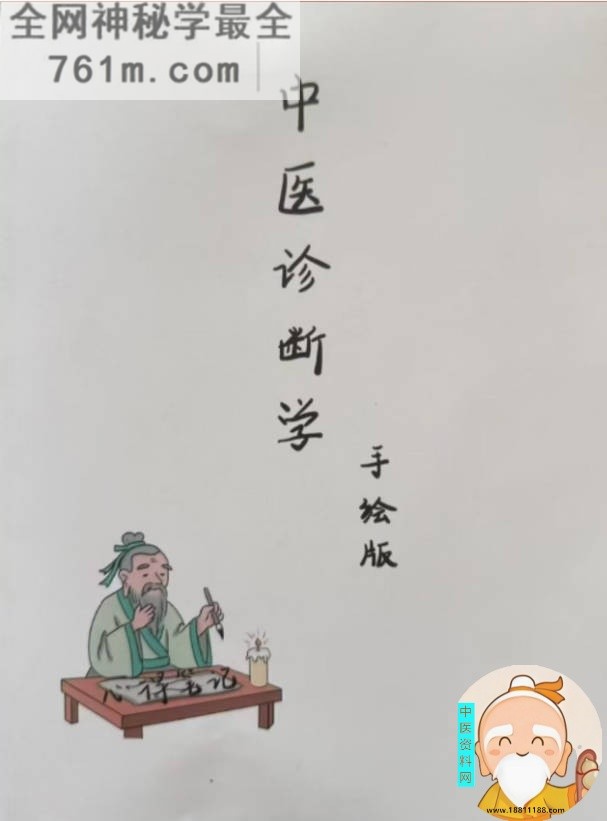 全网神秘学最全
761m.com
中医诊断学
手绘版
心得笔记
中医资料网
www.18811188.com